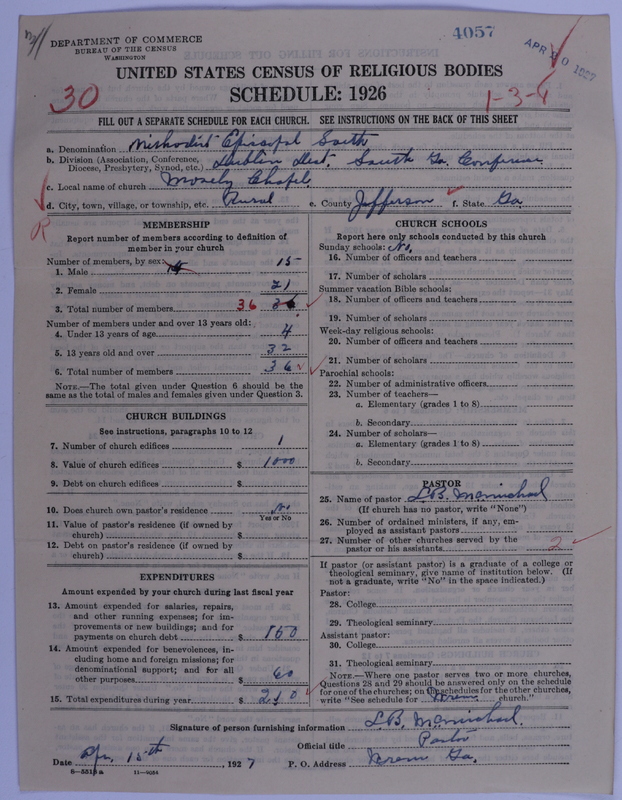 4057
DEPARTMENT OF COMMERCE
BUREAU OF THE CENSUS
WASHINGTON
APR 1927
UNITED STATES CENSUS OF RELIGIOUS BODIES
SCHEDULE: 1926
30
1-3-4
FILL OUT A SEPARATE SCHEDULE FOR EACH CHURCH. SEE INSTRUCTIONS ON THE BACK OF THIS SHEET
a. Denomination Methodist Episcopal South
b. Division (Association, Conference, Diocese, Presbytery, Synod, etc.) Dublin Dist. South Ga. Conference
c. Local name of church Mosely Chapel
d. City, town, village, or township, etc. Rural e. County Jefferson f. State Ga.
R
MEMBERSHIP
Report number of members according to definition of
member in your church
Number of members, by sex:
1. Male 15
2. Female 21
3. Total number of members 36 36
Number of members under and over 13 years old:
4. Under 13 years of age 4
5. 13 years old and over 32
6. Total number of members 36
NOTE.—The total given under Question 6 should be
same as the total of males and females given under Question 3.
CHURCH BUILDINGS
See instructions, paragraphs 10 to 12
7. Number of church edifices 1
8. Value of church edifices $ 1000
9. Debt on church edifices $
10. Does church own pastor's residence No
Yes or No
11. Value of pastor's residence (if owned by
church) $
12. Debt on pastor's residence (if owned by
church) $
EXPENDITURES
Amount expended by your church during last fiscal year
13. Amount expended for salaries, repairs,
and other running expenses; for im-
provements or new buildings; and for
payments on church debt $ 150
14. Amount expended for benevolences, in-
cluding home and foreign missions; for
denominational support; and for all
other purposes $ 60
15. Total expenditures during year $ 210
CHURCH SCHOOLS
Report here only schools conducted by this church
Sunday schools: No.
16. Number of officers and teachers
17. Number of scholars
Summer vacation Bible schools:
18. Number of officers and teachers
19. Number of scholars
Week-day religious schools:
20. Number of officers and teachers
21. Number of scholars
Parochial schools:
22. Number of administrative officers
23. Number of teachers—
a. Elementary (grades 1 to 8)
b. Secondary
24. Number of scholars—
a. Elementary (grades 1 to 8)
b. Secondary
PASTOR
25. Name of pastor L.B. McMichael
(If church has no pastor, write "None")
26. Number of ordained ministers, if any, em-
ployed as assistant pastors
27. Number of other churches served by the
pastor or his assistants 2
If pastor (or assistant pastor) is a graduate of a college or
theological seminary, give name of institution below. (If
not a graduate, write "No" in the space indicated.)
Pastor:
28. College
29. Theological seminary
Assistant pastor:
30. College
31. Theological seminary
NOTE.—Where one pastor serves two or more churches,
Questions 28 and 29 should be answered only on the schedule
for one of the churches; on the schedules for the other churches,
write "See schedule for Wrens church."
Signature of person furnishing information L.B. McMichael.
Official title Pastor
Date Apr, 15th 1927 P. O. Address Wrens Ga.
8—551a 11—9054